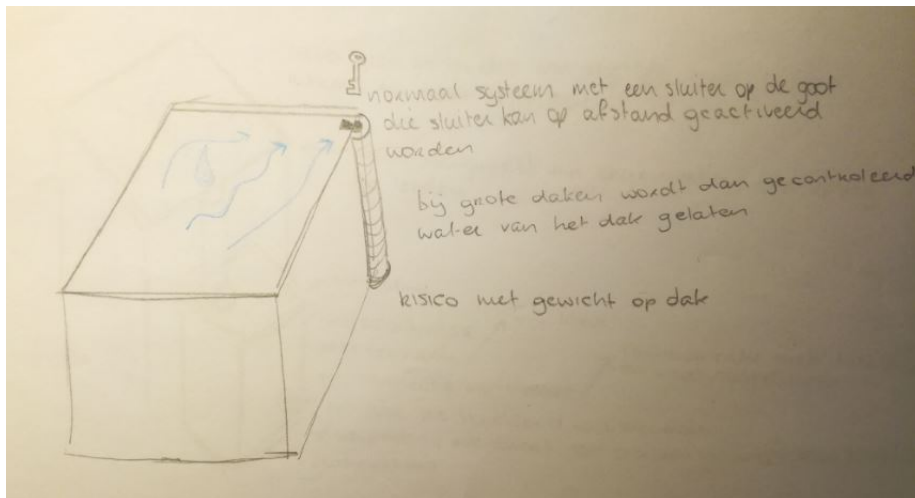 normaal systeem met een sluiter op de goot
die sluiter kan op afstand geactiveerd
worden
bij grote daken wordt dan gecontroleerd
water van het dak gelaten
risico met gewicht op dak